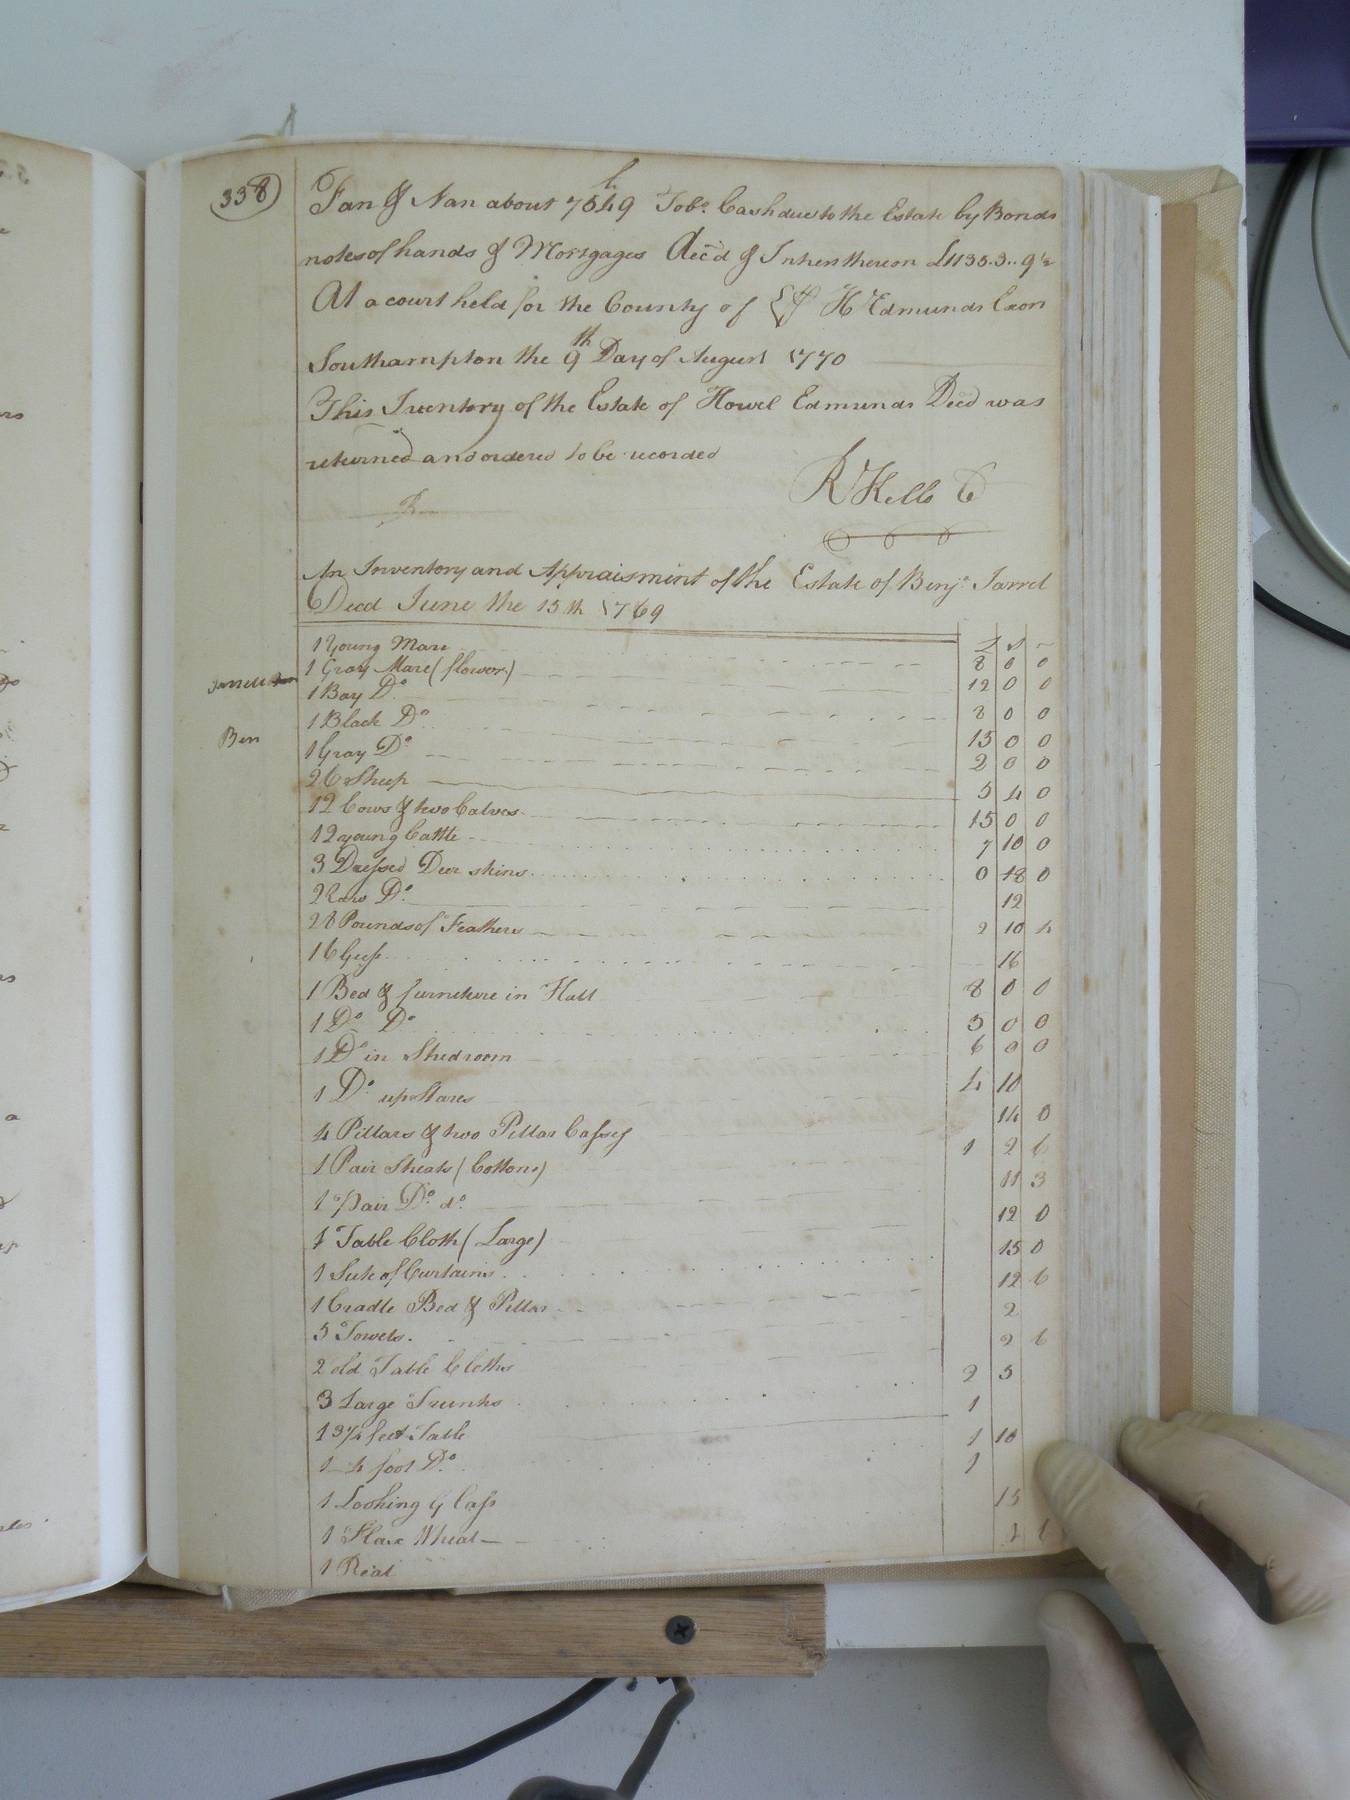 338
Fan & Nan about 7649 lb Tobo. Cash due to the Estate by Bonds
notes of hands & Mortgages Acc'd & Inher thereon £1135.3..9½
At a court held for the County of H Edmunds Exor
Southampton the 9th Day of August 1770
This Inventory of the Estate of Howel Edmunds Decd was
returned and ordered to be recorded
R Kello C
An Inventory and Appraisment of the Estate of Benja. Jarrel
Decd June the 15th 1769
Ben
1 Young Mare £ s -
1 Gray Mare (flower) 8 0 0
1 Bay Do 12 0 0
1 Black Do 8 0 0
1 Gray Do 15 0 0
2 0 0
26 Sheep 5 4 0
12 Cows & two Calves 15 0 0
12 young Cattle 7 10 0
3 Dressed Deer skins 0 18 0
2 Raw Do. 12
28 Pounds of Feathers 2 10 4
16 Geese 16
1 Bed & furneture in Hall 8 0 0
1 Do Do 5 0 0
1 Do in Shedroom 6 0 0
1 Do up Stares 4 10
4 Pillars & two Pillar Cases 14 0
1 Pair Sheats (Cotton) 1 2 6
1 Pair Do. do. 11 3
1 Table Cloth (Large) 12 0
1 Sute of Curtains 15 0
1 Cradle Bed & Pillar 12 6
5 Towels. 2
2 old Table Cloths 2 6
3 Large Trunks 2 5
1 3½ feet Table 1
1 4 foot Do. 1 10
1 Looking Glass 1
1 Flax Wheal 15
1 Real